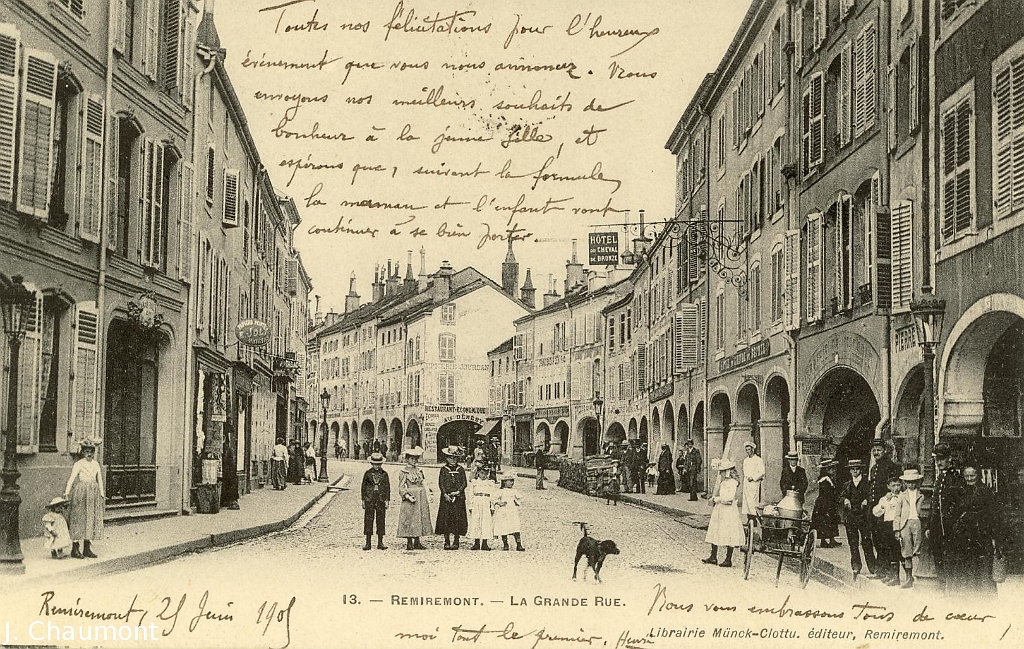 Toutes nos félicitations pour l'heureux
événement que vous nous annoncez. Nous
envoyons nos meilleurs souhaits de
bonheur à la jeune fille, et
espérons que, suivant la formule,
la maman et l'enfant vont
continuer à se bien porter.
HÔTEL
DU CHEVAL
DE BRONZE
RESTAURANT-ÉCONOMIQUE
13. — REMIREMONT. — LA GRANDE RUE.
Remiremont, 25 Juin 1905
Nous vous embrassons tous de cœur
moi tout le premier. Henri
Librairie Münck-Clottu, éditeur, Remiremont.
J. Chaumont